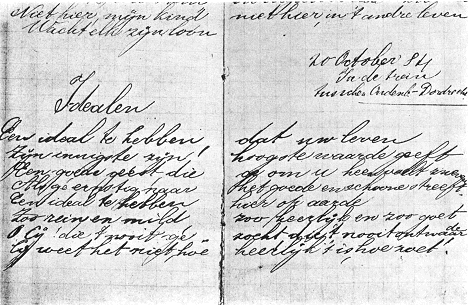 Niet hier, mijn kind
Wacht elk zijn loon
niet hier, in 't andre leven
20 October 84
In de trein
tusschen Oudenb - Dordrecht
Idealen
Een ideal te hebben
Zijn innigste zijn!
Een goede geest, die
Als ge ernstig naar
Een ideal te hebben
Zoo rein en mild
O Gij! die 't nooit
Gij weet het niet hoe
dat uw leven
hoogste waarde geeft
op om u heen
het goede en schoone streeft
hier op aarde
zoo heerlijk en zoo goed
zocht nooit
heerlijk 't is hoe zoet!